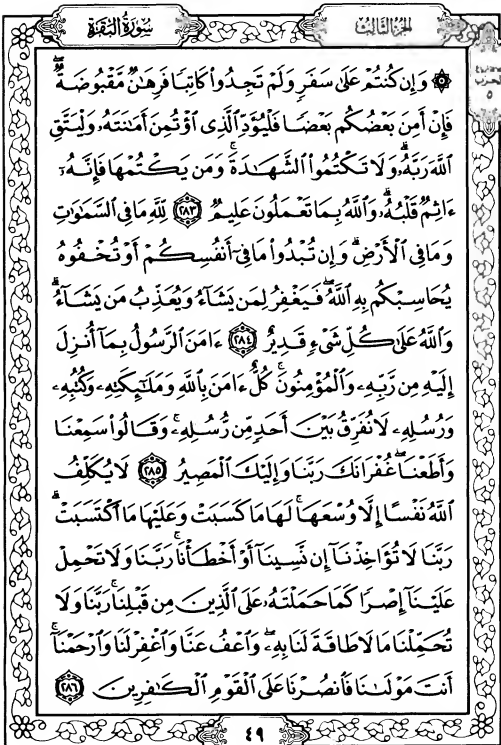 سُورَةُ البَقَرَةِ
الجُزءُ الثَّالِثُ
الحزب
٥
۞ وَإِن كُنتُمْ عَلَىٰ سَفَرٍ وَلَمْ تَجِدُوا۟ كَاتِبًا فَرِهَٰنٌ مَّقْبُوضَةٌ ۖ
فَإِنْ أَمِنَ بَعْضُكُم بَعْضًا فَلْيُؤَدِّ ٱلَّذِى ٱؤْتُمِنَ أَمَٰنَتَهُۥ وَلْيَتَّقِ
ٱللَّهَ رَبَّهُۥ ۗ وَلَا تَكْتُمُوا۟ ٱلشَّهَٰدَةَ ۚ وَمَن يَكْتُمْهَا فَإِنَّهُۥٓ
ءَاثِمٌ قَلْبُهُۥ ۗ وَٱللَّهُ بِمَا تَعْمَلُونَ عَلِيمٌ ٢٨٣ لِّلَّهِ مَا فِى ٱلسَّمَٰوَٰتِ
وَمَا فِى ٱلْأَرْضِ ۗ وَإِن تُبْدُوا۟ مَا فِىٓ أَنفُسِكُمْ أَوْ تُخْفُوهُ
يُحَاسِبْكُم بِهِ ٱللَّهُ ۖ فَيَغْفِرُ لِمَن يَشَآءُ وَيُعَذِّبُ مَن يَشَآءُ ۗ
وَٱللَّهُ عَلَىٰ كُلِّ شَىْءٍ قَدِيرٌ ٢٨٤ ءَامَنَ ٱلرَّسُولُ بِمَآ أُنزِلَ
إِلَيْهِ مِن رَّبِّهِۦ وَٱلْمُؤْمِنُونَ ۚ كُلٌّ ءَامَنَ بِٱللَّهِ وَمَلَٰٓئِكَتِهِۦ وَكُتُبِهِۦ
وَرُسُلِهِۦ لَا نُفَرِّقُ بَيْنَ أَحَدٍ مِّن رُّسُلِهِۦ ۚ وَقَالُوا۟ سَمِعْنَا
وَأَطَعْنَا ۖ غُفْرَانَكَ رَبَّنَا وَإِلَيْكَ ٱلْمَصِيرُ ٢٨٥ لَا يُكَلِّفُ
ٱللَّهُ نَفْسًا إِلَّا وُسْعَهَا ۚ لَهَا مَا كَسَبَتْ وَعَلَيْهَا مَا ٱكْتَسَبَتْ ۗ
رَبَّنَا لَا تُؤَاخِذْنَآ إِن نَّسِينَآ أَوْ أَخْطَأْنَا ۚ رَبَّنَا وَلَا تَحْمِلْ
عَلَيْنَآ إِصْرًا كَمَا حَمَلْتَهُۥ عَلَى ٱلَّذِينَ مِن قَبْلِنَا ۚ رَبَّنَا وَلَا
تُحَمِّلْنَا مَا لَا طَاقَةَ لَنَا بِهِۦ ۖ وَٱعْفُ عَنَّا وَٱغْفِرْ لَنَا وَٱرْحَمْنَآ ۚ
أَنتَ مَوْلَىٰنَا فَٱنصُرْنَا عَلَى ٱلْقَوْمِ ٱلْكَٰفِرِينَ ٢٨٦
٤٩